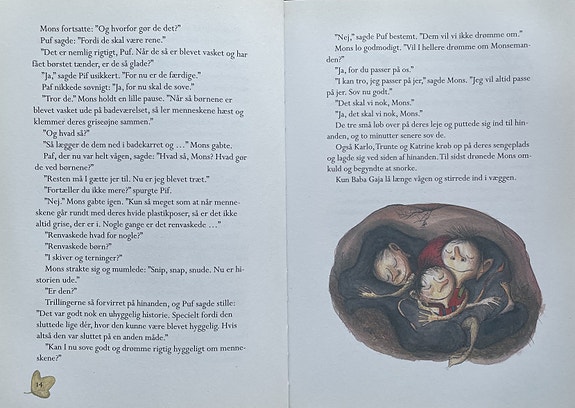 Mons fortsatte: "Og hvorfor gør de det?"
Puf sagde: "Fordi de skal være rene."
"Det er nemlig rigtigt, Puf. Når de så er blevet vasket og har
fået børstet tænder, er de så glade?"
"Ja," sagde Pif usikkert. "For nu er de færdige."
Paf nikkede søvnigt: "Ja, for nu skal de sove."
"Tror de." Mons holdt en lille pause. "Når så børnene er
blevet vasket ude på badeværelset, så ler menneskene hæst og
klemmer deres griseøjne sammen."
"Og hvad så?"
"Så lægger de dem ned i badekarret og …" Mons gabte.
Paf, der nu var helt vågen, sagde: "Hvad så, Mons? Hvad gør
de ved børnene?"
"Resten må I gætte jer til. Nu er jeg blevet træt."
"Fortæller du ikke mere?" spurgte Pif.
"Nej." Mons gabte igen. "Kun så meget som at når menne-
skene går rundt med deres hvide plastikposer, så er det ikke
altid grise, der er i. Nogle gange er det renvaskede …"
"Renvaskede hvad for nogle?"
"Renvaskede børn?"
"I skiver og terninger?"
Mons strakte sig og mumlede: "Snip, snap, snude. Nu er hi-
storien ude."
"Er den?"
Trillingerne så forvirret på hinanden, og Puf sagde stille:
"Det var godt nok en uhyggelig historie. Specielt fordi den
sluttede lige dér, hvor den kunne være blevet hyggelig. Hvis
altså den var sluttet på en anden måde."
"Kan I nu sove godt og drømme rigtig hyggeligt om menne-
skene?"
14
"Nej," sagde Puf bestemt. "Dem vil vi ikke drømme om."
Mons lo godmodigt. "Vil I hellere drømme om Monseman-
den?"
"Ja, for du passer på os."
"I kan tro, jeg passer på jer," sagde Mons. "Jeg vil altid passe
på jer. Sov nu godt."
"Det skal vi nok, Mons."
"Ja, det skal vi nok, Mons."
De tre små løb over på deres leje og puttede sig ind til hin-
anden, og to minutter senere sov de.
Også Karlo, Trunte og Katrine krob op på deres sengeplads
og lagde sig ved siden af hinanden. Til sidst drønede Mons om-
kuld og begyndte at snorke.
Kun Baba Gaja lå længe vågen og stirrede ind i væggen.